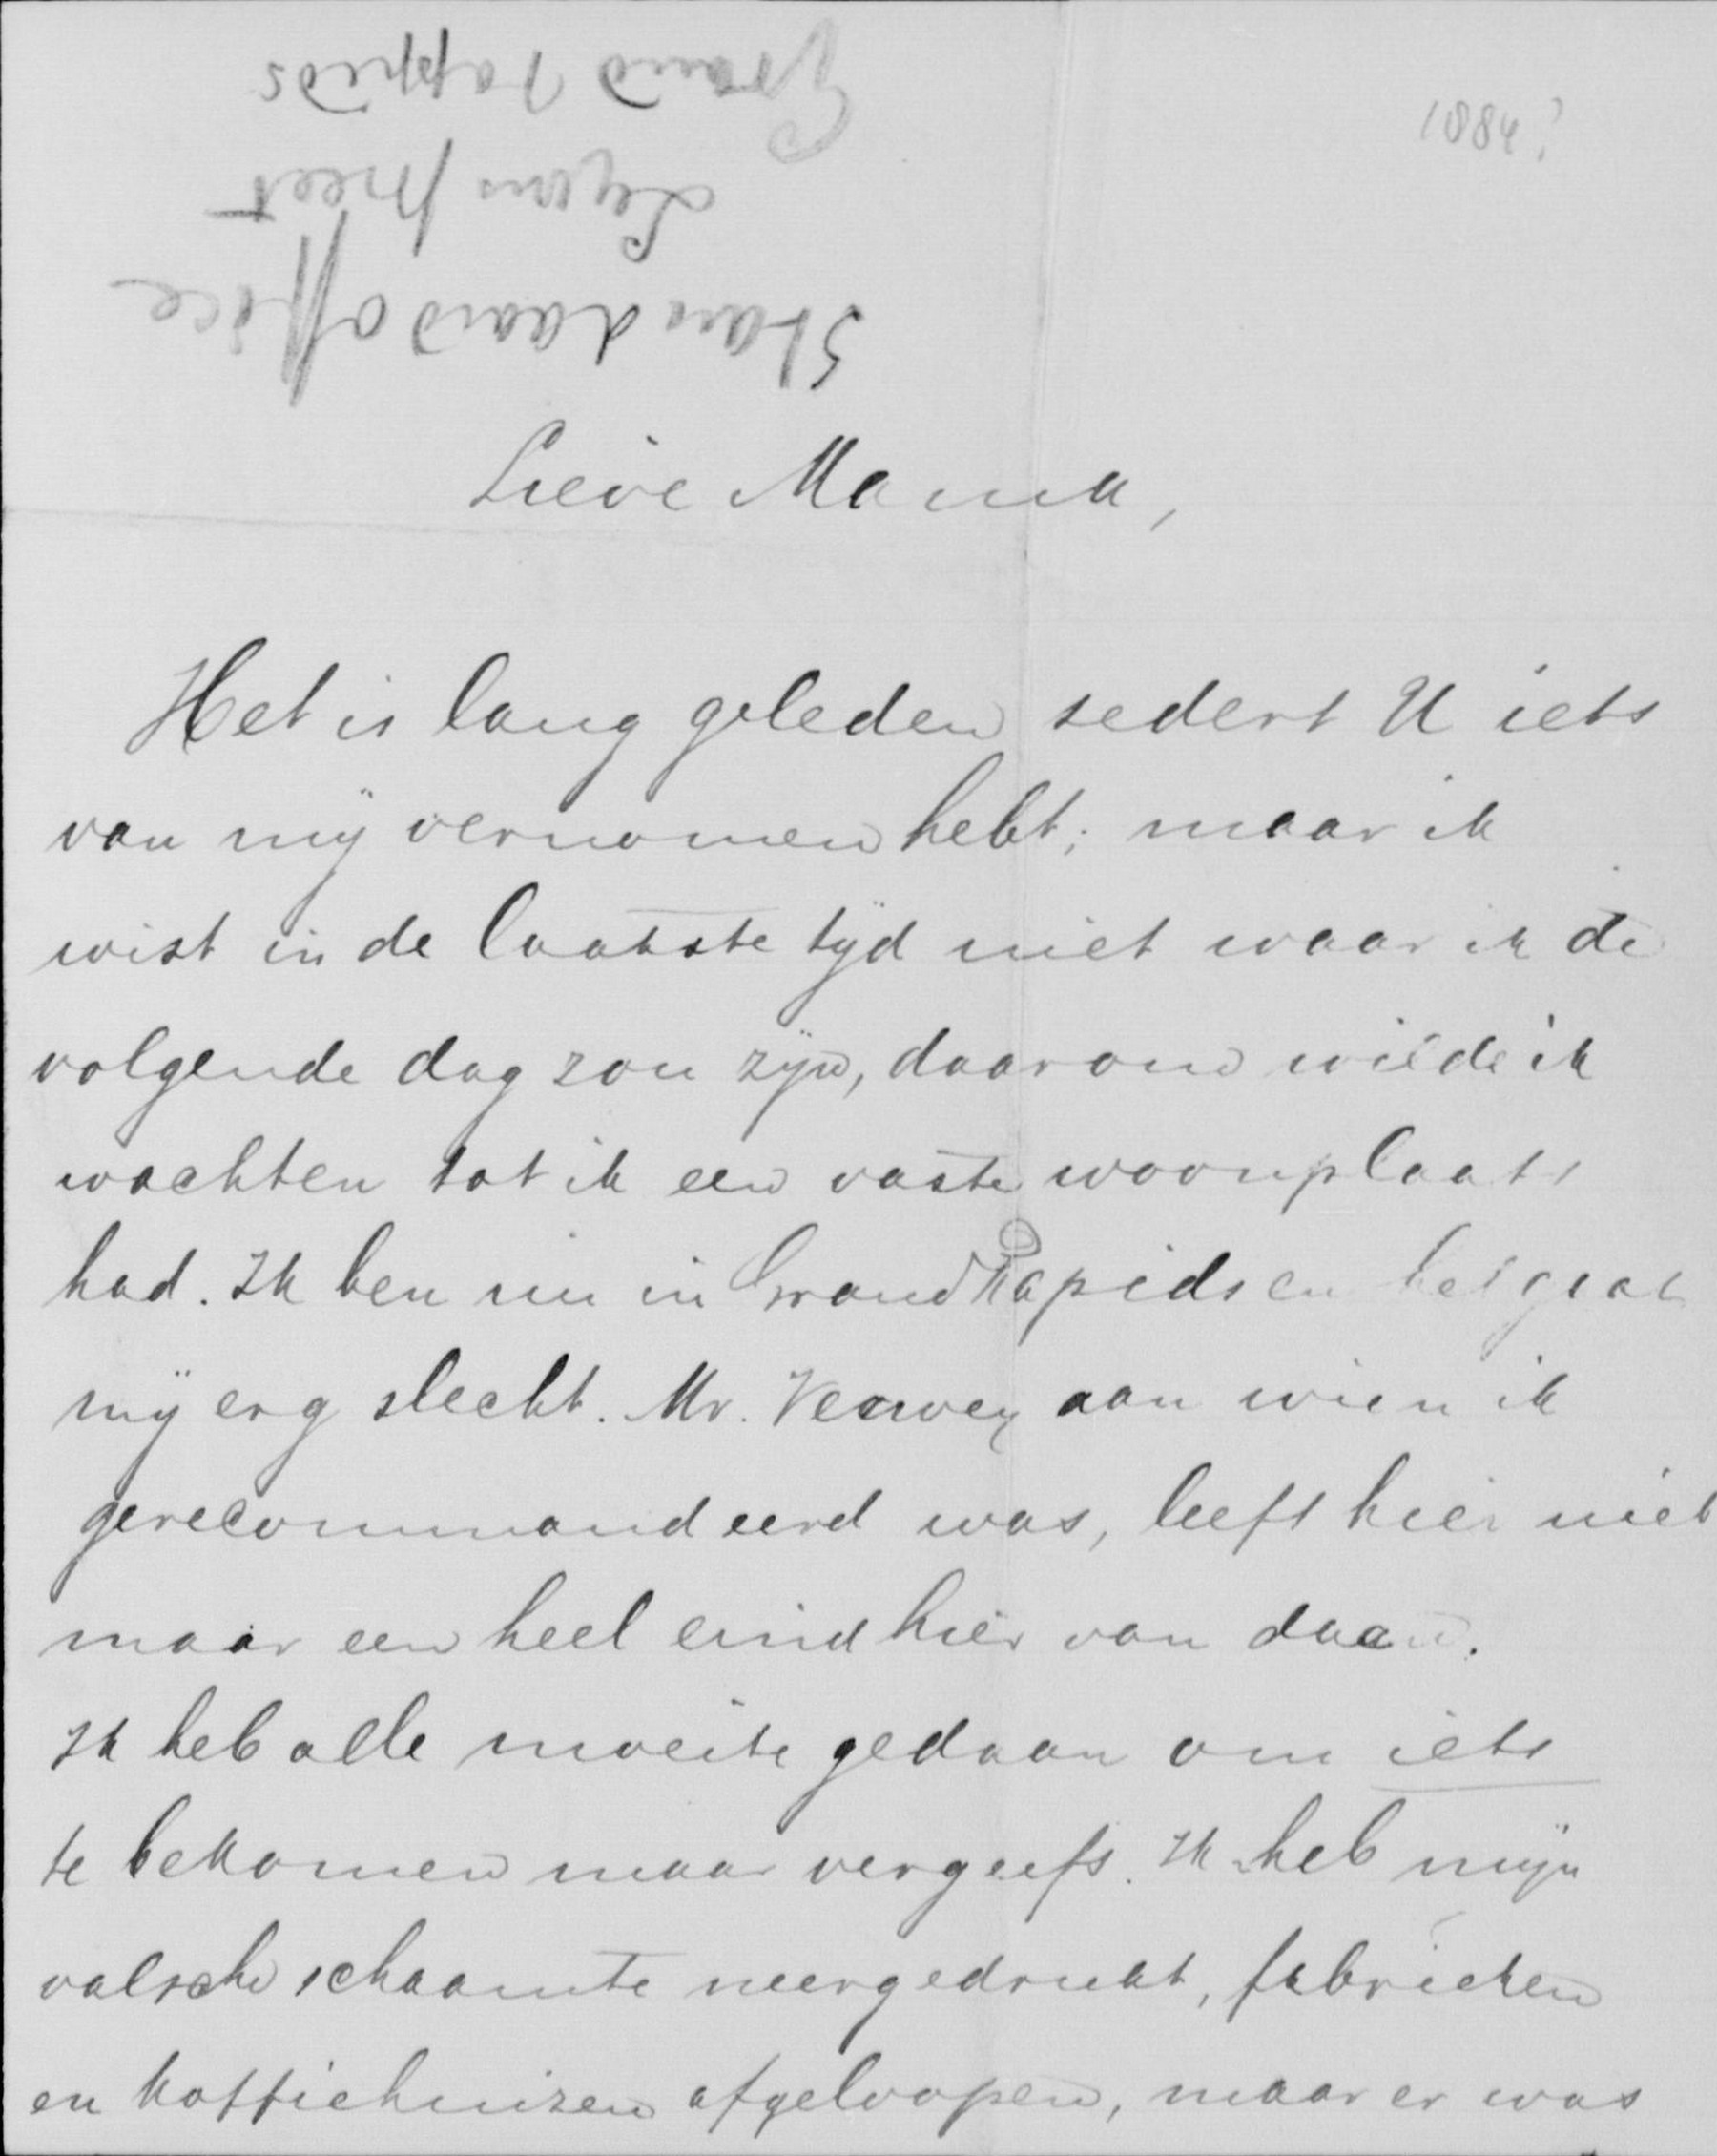 1884?
Standaard office
Lyons street
Grand rappids
Lieve Mama,
Het is lang geleden sedert U iets
van mij vernomen hebt; maar ik
wist in de laatste tijd niet waar ik de
volgende dag zou zijn, daarom wilde ik
wachten tot ik een vaste woonplaats
had. Ik ben nu in Grand Rapids en het gaat
mij erg slecht. Mr. Verwey aan wien ik
gerecommandeerd was, leeft hier niet
maar een heel eind hier van daan.
Ik heb alle moeite gedaan om iets
te bekomen maar vergeefs. Ik heb mijn
valsche schaamte neergedrukt, fabrieken
en koffiehuizen afgeloopen, maar er was